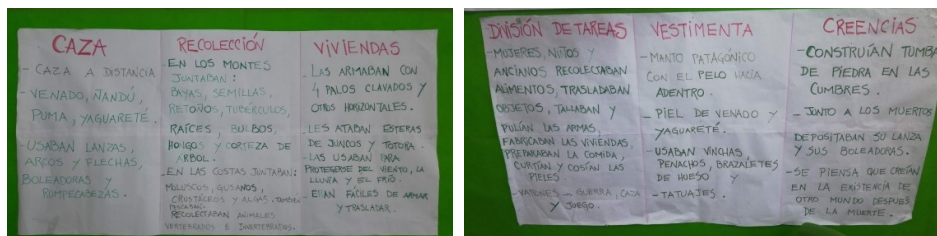 CAZA
- CAZA A DISTANCIA
- VENADO, ÑANDÚ,
PUMA, YAGUARETÉ.
- USABAN LANZAS,
ARCOS Y FLECHAS,
BOLEADORAS Y
ROMPECABEZAS.
RECOLECCIÓN
- EN LOS MONTES
JUNTABAN:
BAYAS, SEMILLAS,
RETOÑOS, TUBÉRCULOS,
RAÍCES, BULBOS,
HONGOS Y CORTEZA DE
ÁRBOL.
- EN LAS COSTAS JUNTABAN:
MOLUSCOS, GUSANOS,
CRUSTÁCEOS Y ALGAS. TAMBIÉN
PESCABAN.
RECOLECTABAN ANIMALES
VERTEBRADOS E INVERTEBRADOS.
VIVIENDAS
- LAS ARMABAN CON
4 PALOS CLAVADOS Y
OTROS HORIZONTALES.
- LES ATABAN ESTERAS
DE JUNCOS Y TOTORA.
- LAS USABAN PARA
PROTEGERSE DEL VIENTO, LA
LLUVIA Y EL FRÍO.
- ERAN FÁCILES DE ARMAR
Y TRASLADAR.
DIVISIÓN DE TAREAS
- MUJERES, NIÑOS Y
ANCIANOS RECOLECTABAN
ALIMENTOS, TRASLADABAN
OBJETOS, TALLABAN Y
PULÍAN LAS ARMAS,
FABRICABAN LAS VIVIENDAS,
PREPARABAN LA COMIDA,
CURTÍAN Y COSÍAN LAS
PIELES.
- VARONES - GUERRA, CAZA
Y JUEGO.
VESTIMENTA
- MANTO PATAGÓNICO
CON EL PELO HACIA
ADENTRO.
- PIEL DE VENADO Y
YAGUARETÉ.
- USABAN VINCHAS,
PENACHOS, BRAZALETES
DE HUESO Y
- TATUAJES.
CREENCIAS
- CONSTRUÍAN TUMBA
DE PIEDRA EN LAS
CUMBRES.
- JUNTO A LOS MUERTOS
DEPOSITABAN SU LANZA
Y SUS BOLEADORAS.
- SE PIENSA QUE CREÍAN
EN LA EXISTENCIA DE
OTRO MUNDO DESPUÉS
DE LA MUERTE.